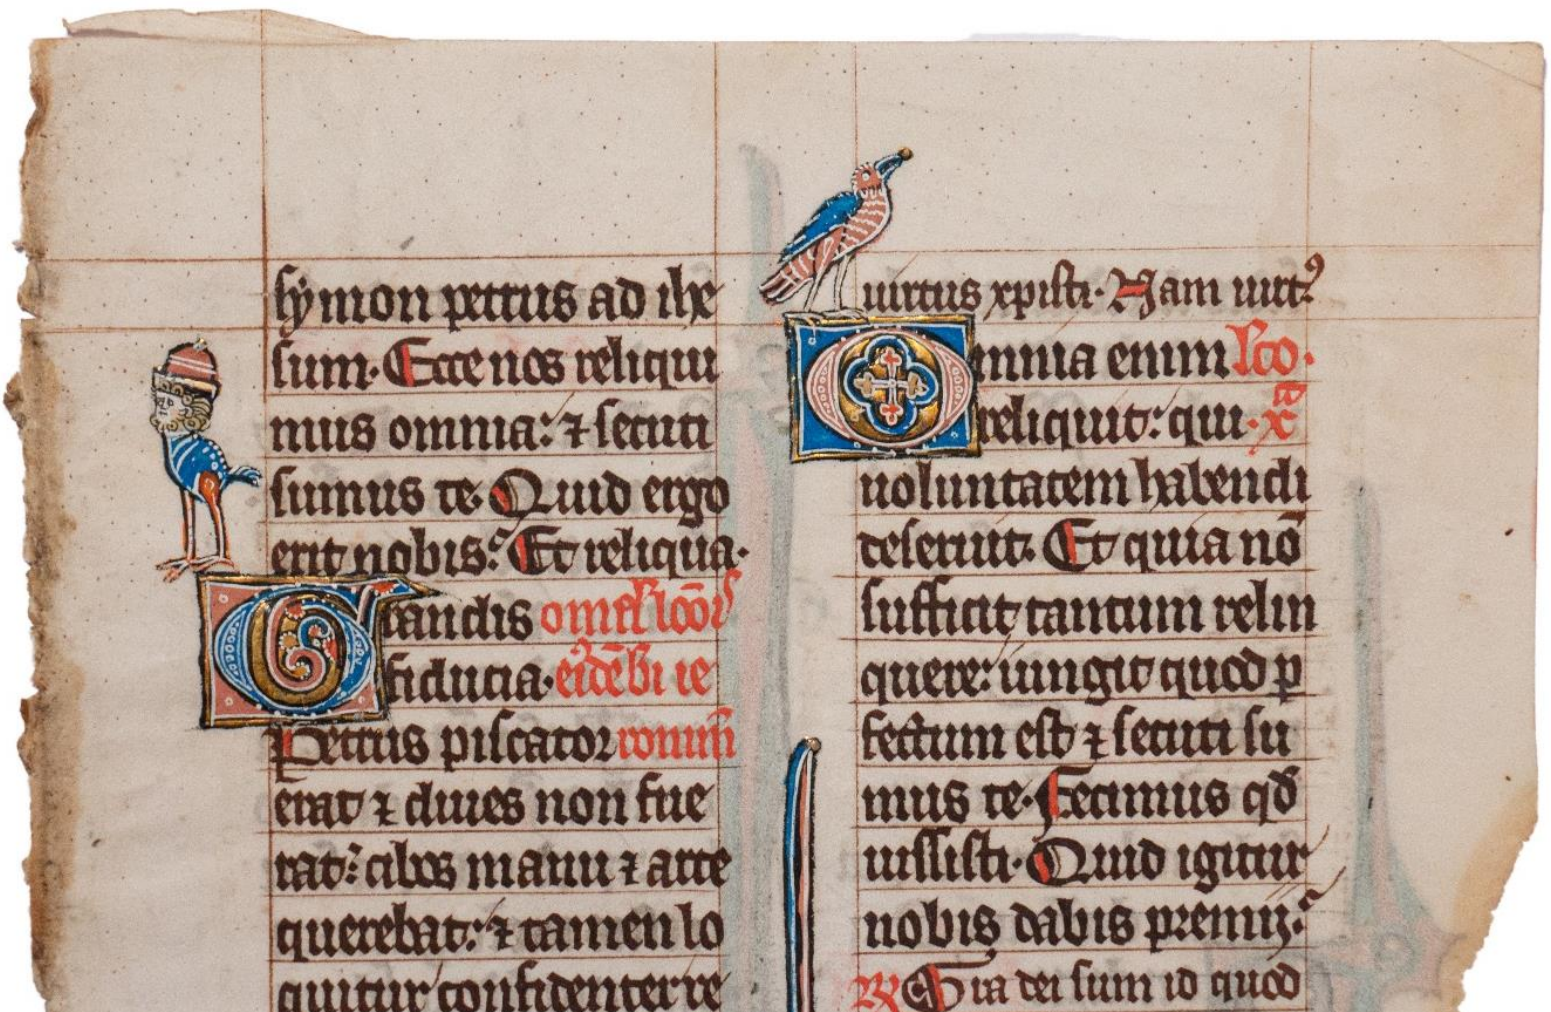 symon petrus ad ihe
sum. Ecce nos reliqui
mus omnia: ⁊ secuti
sumus te. Quid ergo
erit nobis? Et reliqua.
Grandis omel' lcōis
fiducia. eiusdē bi ie
Petrus piscator ronimi
erat ⁊ diues non fue
rat: cibos manu ⁊ arte
querebat: ⁊ tamen lo
quitur confidenter re
uirtus xpisti. Nam uirtꝰ
Omnia enim lco.
reliquit: qui .xa
uoluntatem habendi
deseruit. Et quia nō
sufficit tantum relin
quere: iungit quod p
fectum est ⁊ secuti su
mus te. Fecimus qd
iussisti. Quid igitur
nobis dabis premij?
℟ Gra dei sum id quod